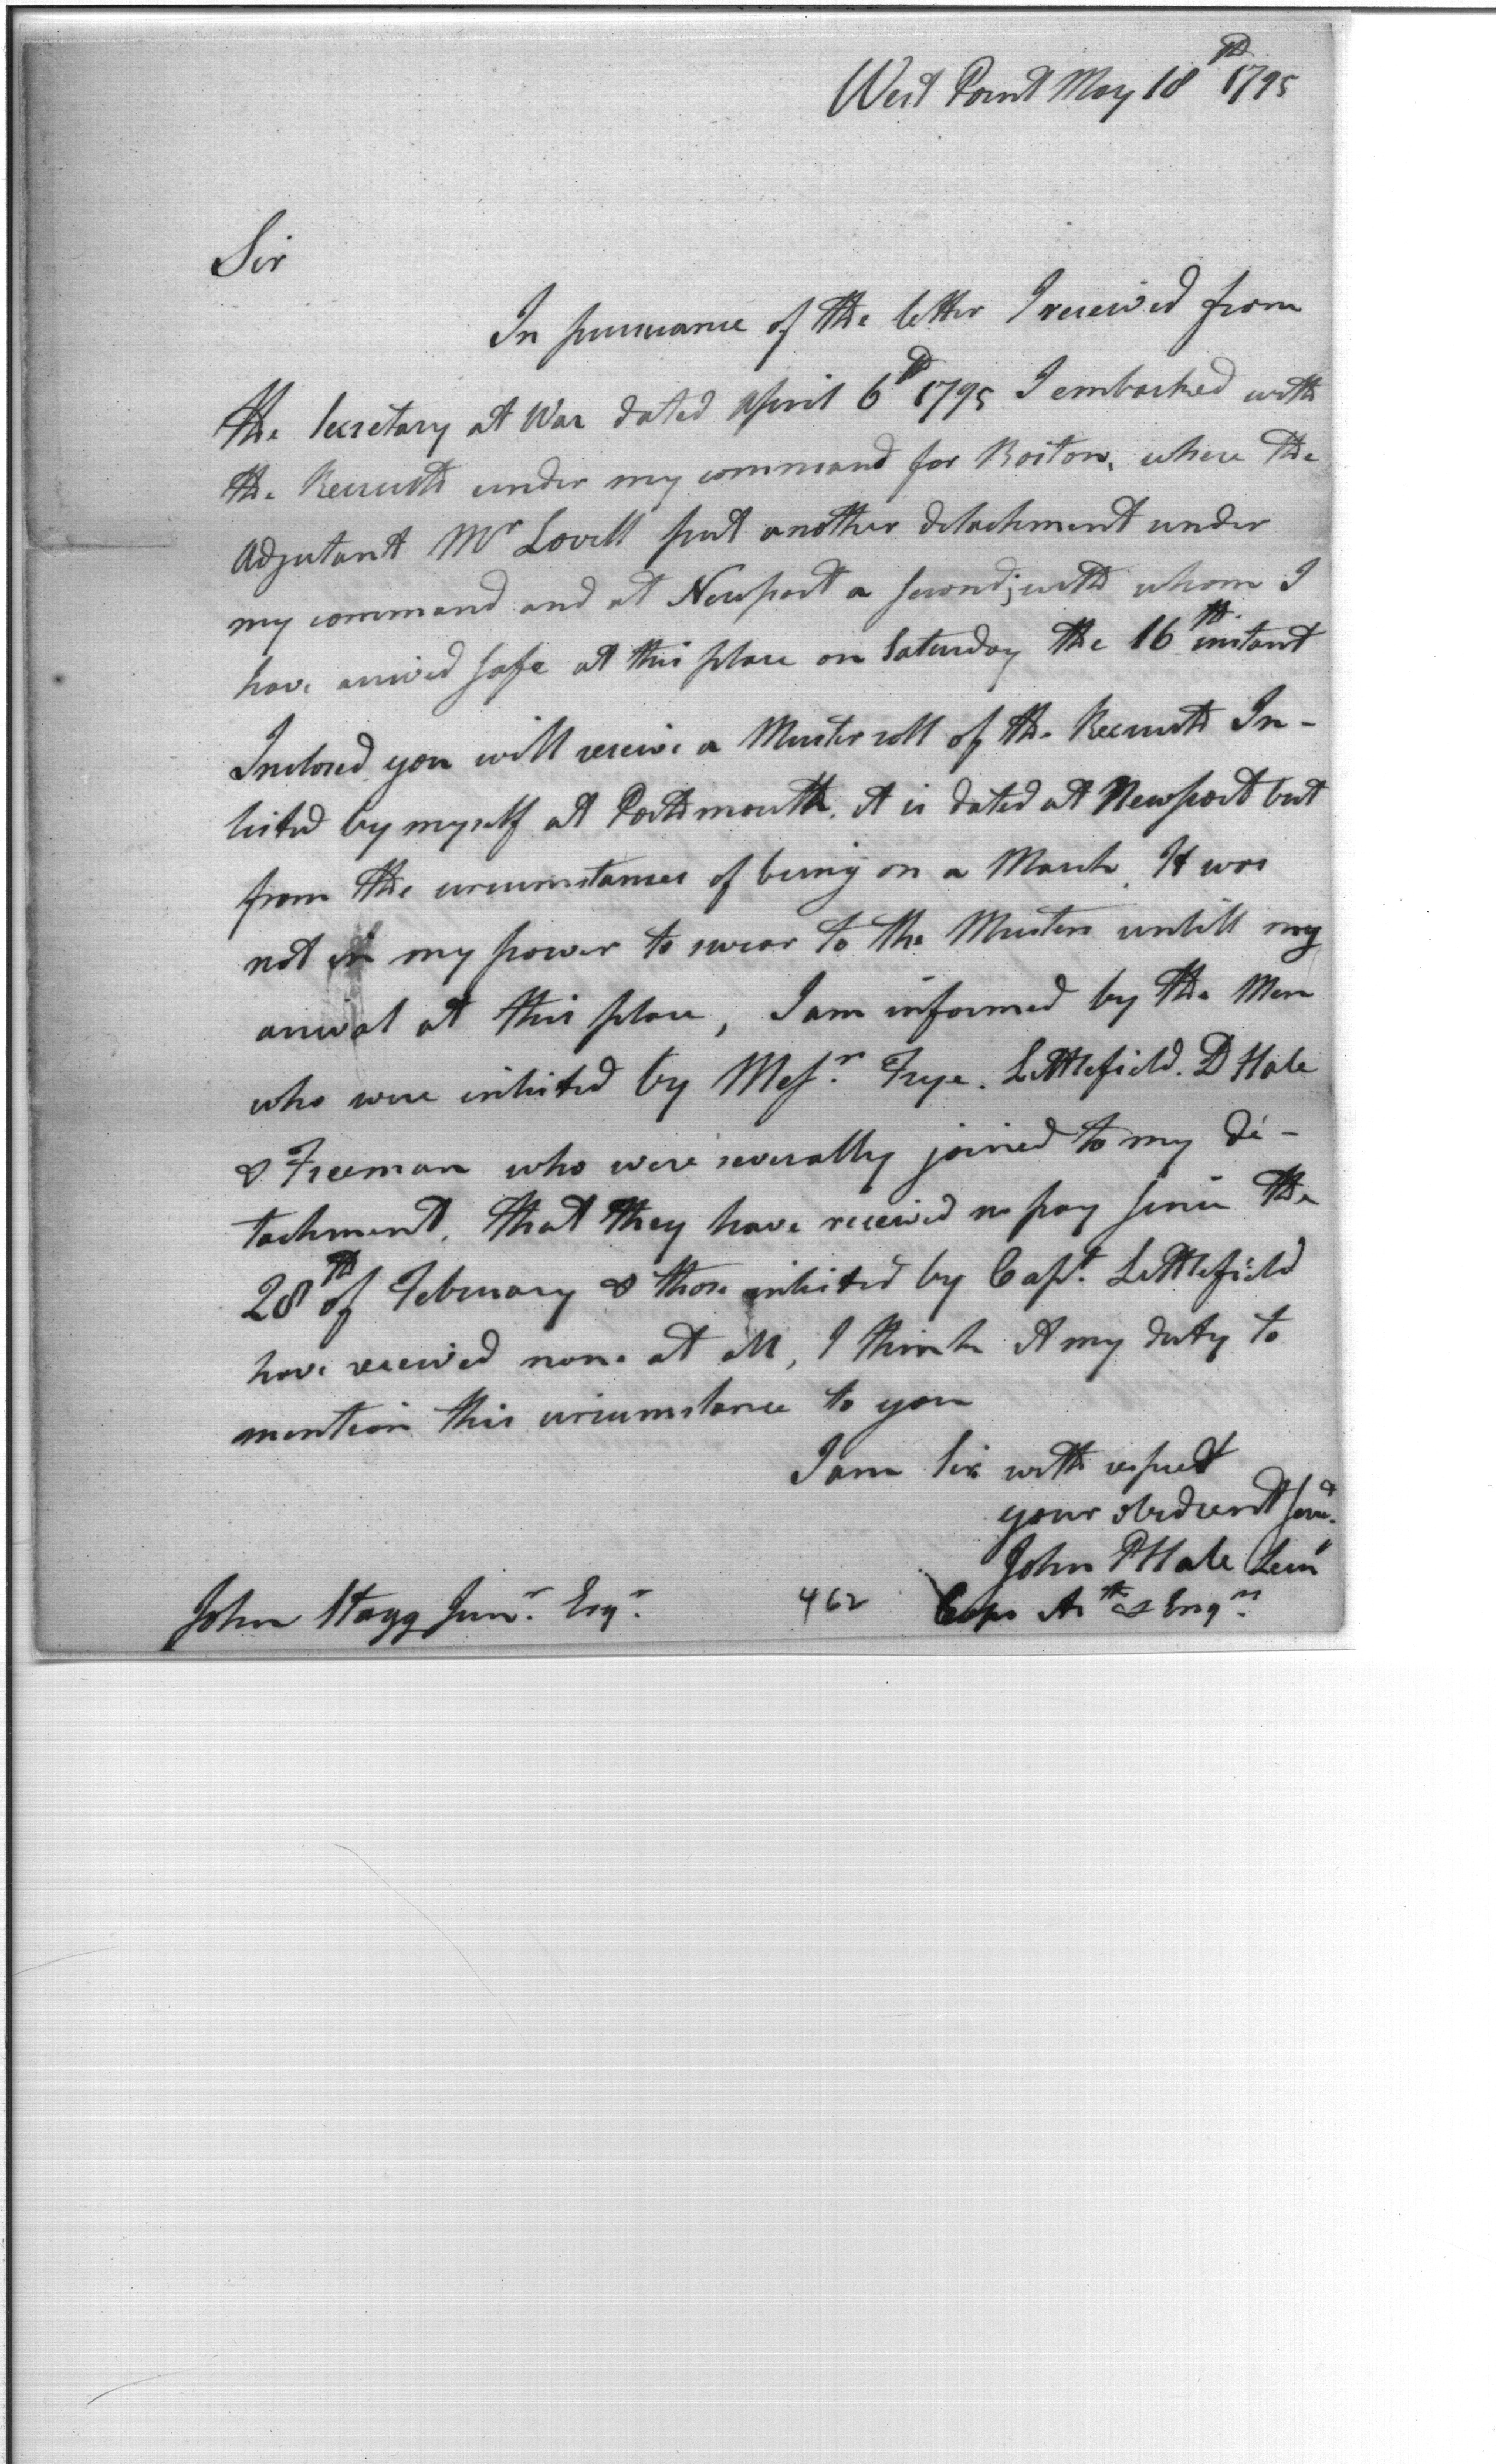 West Point May 18th 1795
Sir
In pursuance of the letter I received from
the Secretary at War dated April 6th 1795 I embarked with
the Recruits under my command for Boston, where the
Adjutant Mr Lovell put another detachment under
my command and at Newport a second; with whom I
have arrived safe at this place on Saturday the 16th instant
Inclosed you will receive a Muster roll of the Recruits In-
listed by myself at Portsmouth, it is dated at Newport but
from the circumstances of being on a March, It was
not in my power to swear to the Musters untill my
arrival at this place, I am informed by the Men
who were inlisted by Messr. Frye. Littlefield. D Hale
& Freeman who were severally joined to my de-
tachment, that they have received no pay since the
28th of February & those inlisted by Capt. Littlefield
have received none at all, I think it my duty to
mention this circumstance to you
I am Sir with respect
your obedient Servt.
John P Hale Leut
Corps Arts & Engrs.
John Stagg Junr. Esqr.
462